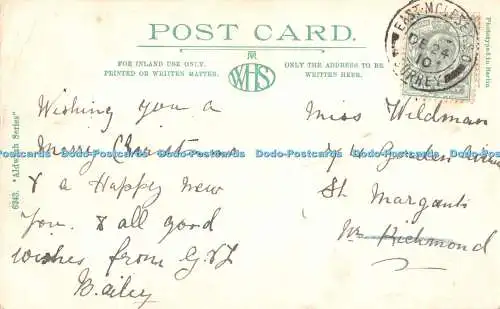 POST CARD.
FOR INLAND USE ONLY.
PRINTED OR WRITTEN MATTER.
WHS
ONLY THE ADDRESS TO BE
WRITTEN HERE.
EAST MOLESEY S.O.
DE 24
10
SURREY
Phototyped in Berlin
6343. "Aldwych Series"
Wishing you a
Merry Christmas
& a Happy New
Year. & all good
wishes from G. & L
Bailey
Miss Wildman
Garden
St. Margarets
Nr Richmond
Dodo-Postcards Dodo-Postcards Dodo-Postcards Dodo-Postcards